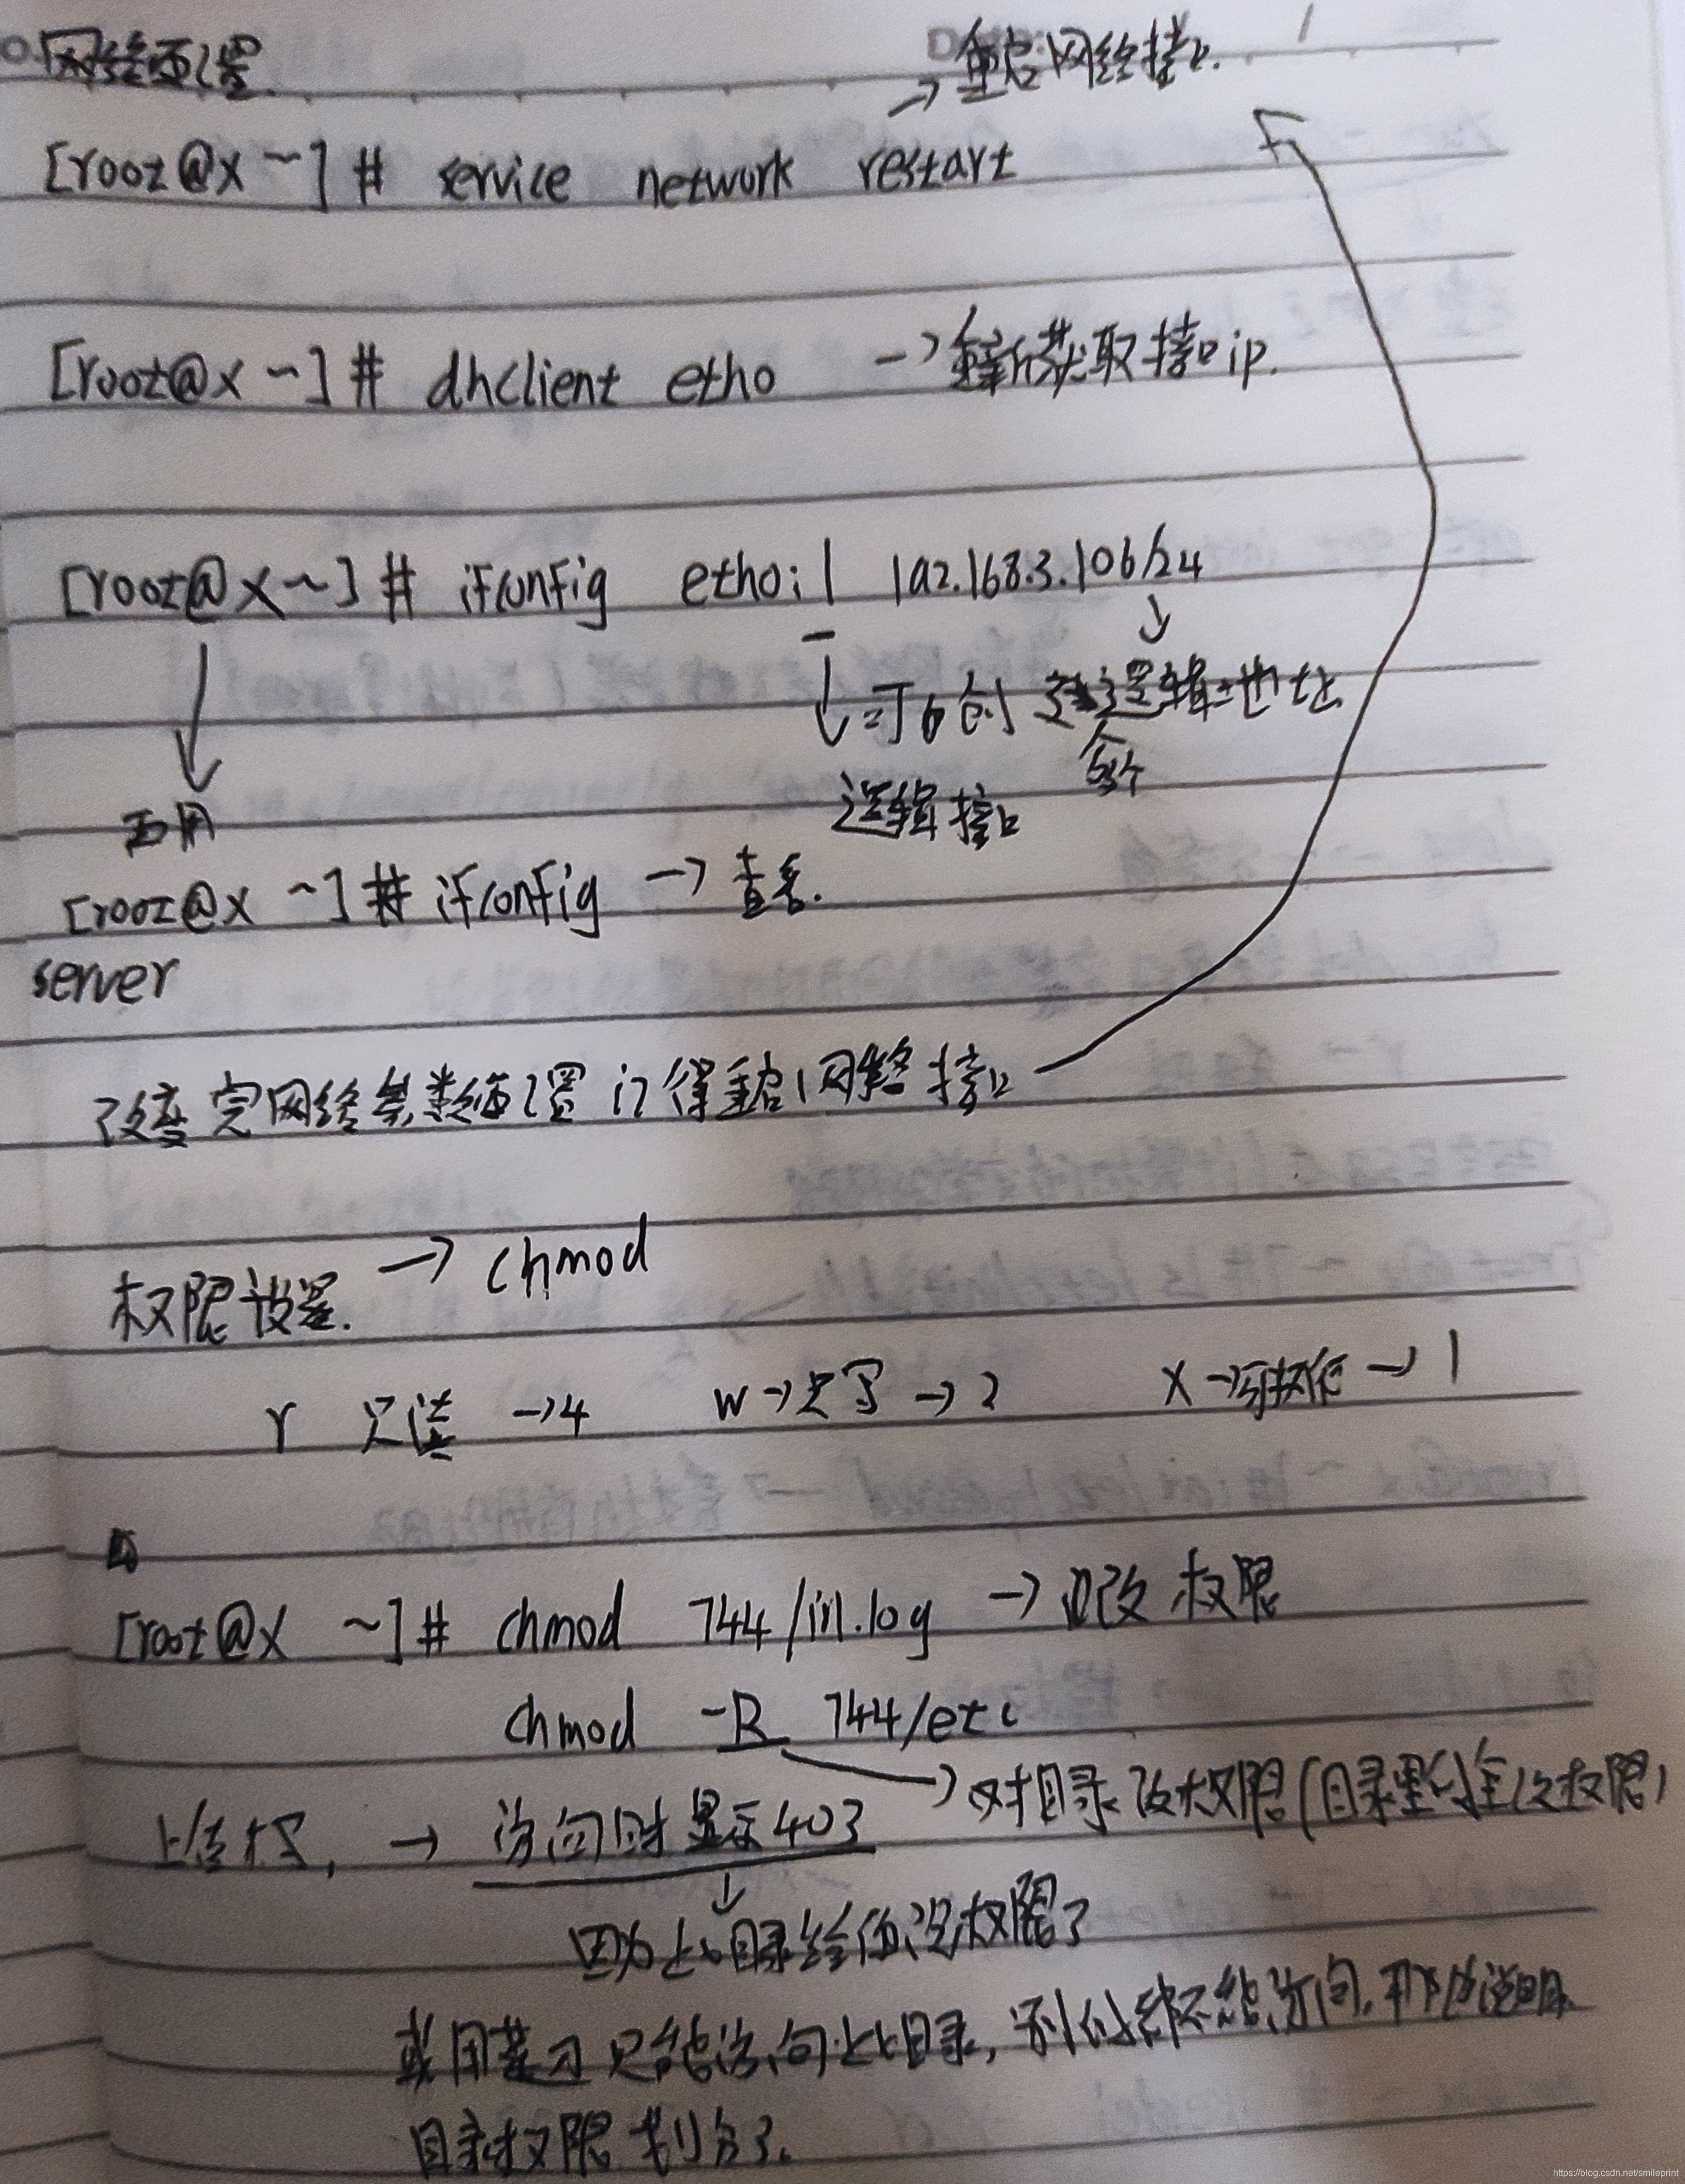 网络配置
→重启网络接口.
[root@x ~] # service network restart
[root@x ~] # dhclient eth0 →重新获取接口ip.
[root@x ~] # ifconfig eth0:1 192.168.3.106/24
可创建逻辑地址
逻辑接口
再用
[root@x ~] # ifconfig → 查看.
server
改变完网络参数配置记得重启网络接口
权限设置. → chmod
r 只读 →4 w→只写→2 x→可执行→1
[root@x ~] # chmod 744 /in.log → 改权限
chmod -R 744 /etc
→对目录改权限(目录里的全改权限)
上传 → 访问时显示403
因为此目录给你没权限了
只能访问此目录, 别的都不能访问. 那也说明
目录权限划分了.